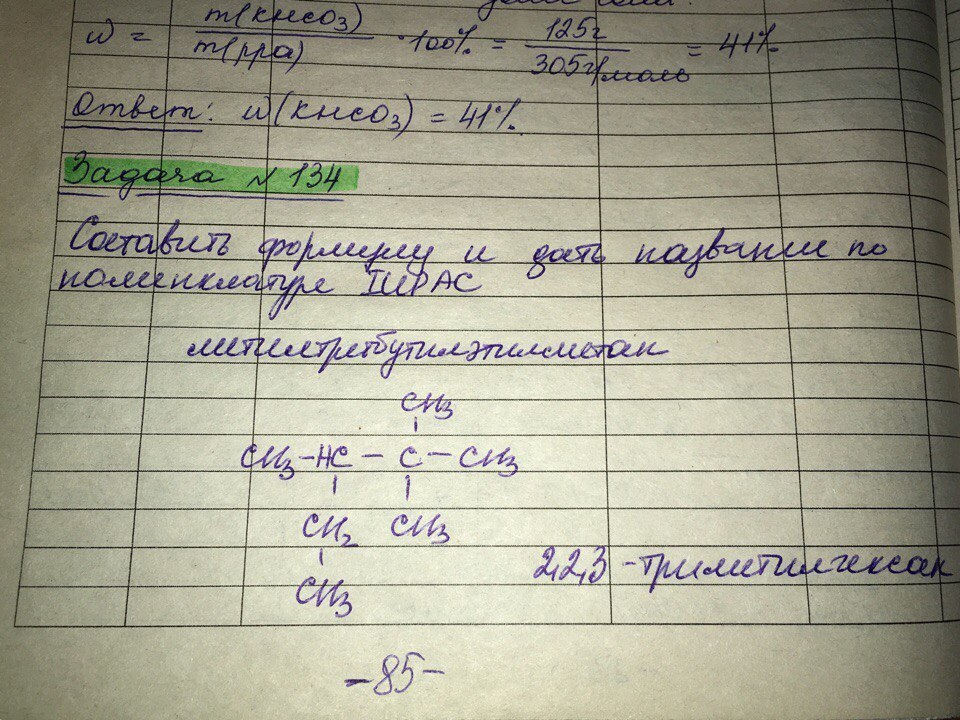 ω = m(KHCO3) / m(рра) · 100% = 125г / 305г/моль = 41%
Ответ: ω(KHCO3) = 41%.
Задача № 134
Составить формулу и дать названии по
номенклатуре IUPAC
метилтретбутилэтилметан
CH3
CH3 - HC - C - CH3
CH2 CH3
CH3
2,2,3 - триметилгексан
-85-